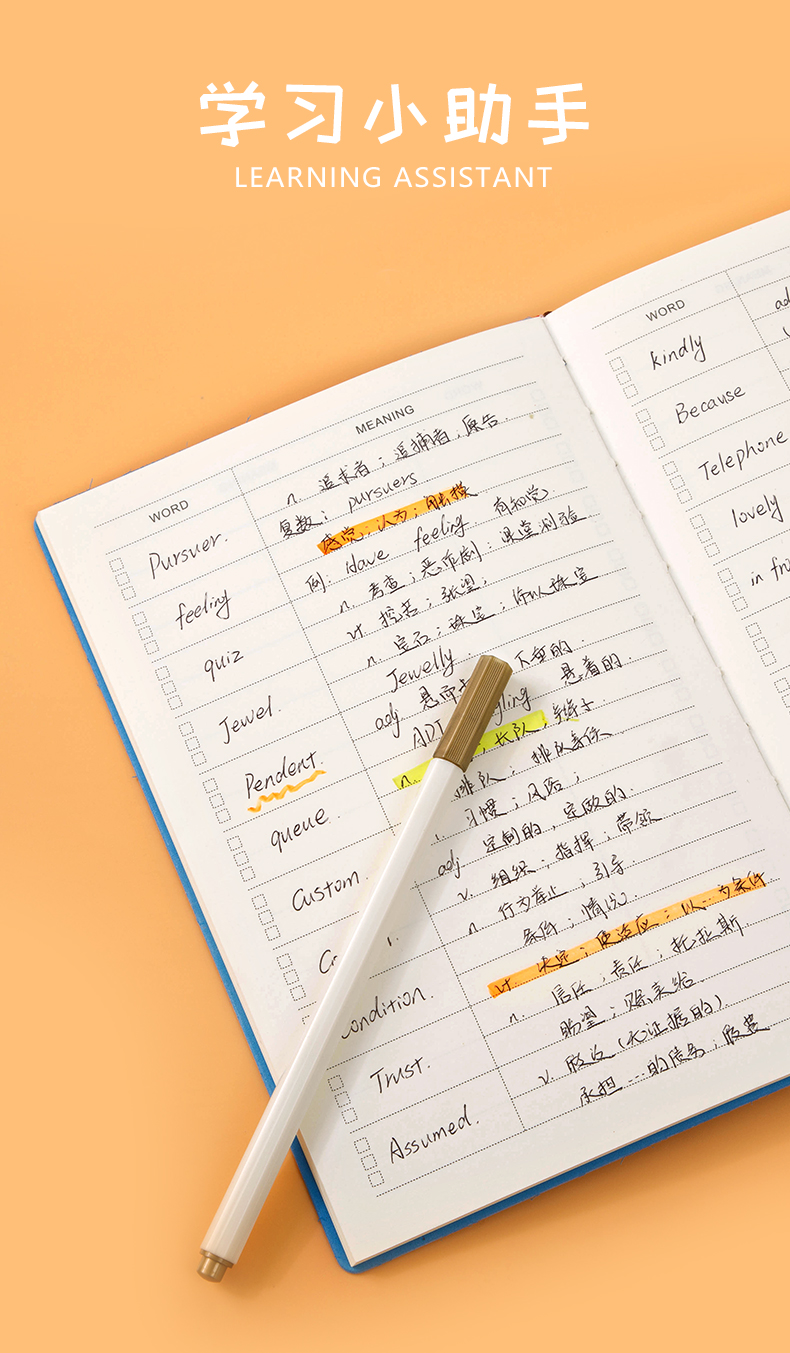 学习小助手
LEARNING ASSISTANT
WORD
MEANING
Pursuer.
n. 追求者；追捕者，原告
复数：pursuers
feeling
感觉；认为；
例：Have feeling 有知觉
quiz
n. 考查；恶作剧；课堂测验
vt. 挖苦；张望；
Jewel.
n. 宝石；珠宝；饰以珠宝
Jewelly
Pendent.
adj 悬而 下垂的
悬着的
queue
n. 长队；辫子
排队；排队等候
Custom.
习惯；风俗；
adj 定制的，定做的
v. 组织；指挥；带领
n 行为举止；引导
ondition.
条件；情况
vt. 决定；使适应；以…为条件
Trust.
n. 信任，责任；托拉斯
盼望；赊卖给
Assumed.
v. 假设（无证据的）
承担…的债务；假装
WORD
kindly
Because
Telephone
lovely